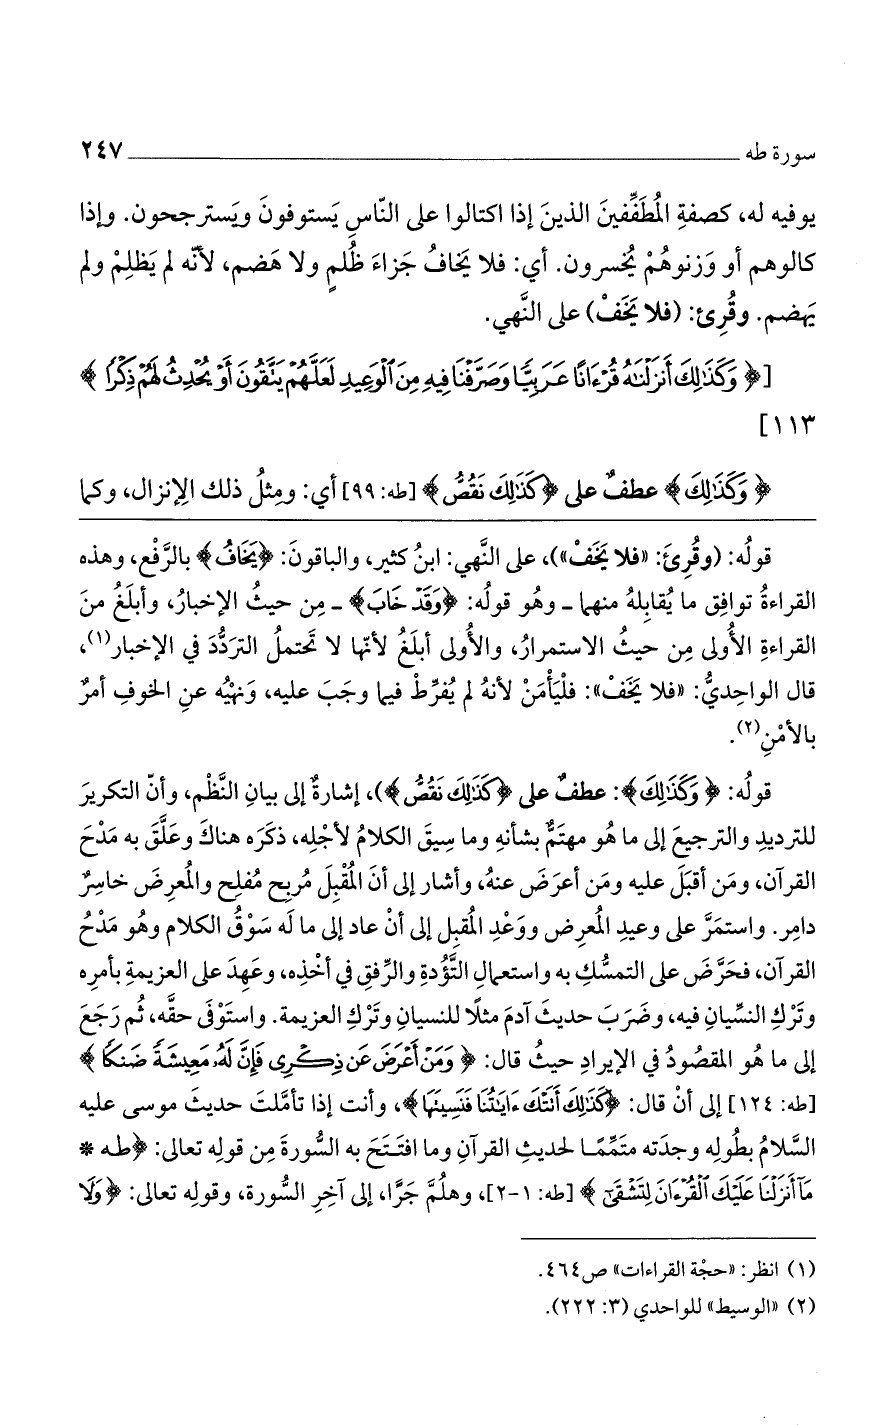 سورة طه ـــــــــــــــــــــــــــــــــــــــــــــ ٢٤٧
يوفيه له، كصفةِ المُطَفِّفينَ الذينَ إذا اكتالوا على النّاسِ يَستوفونَ ويَسترجحون. وإذا
كالوهم أو وَزنوهُمْ يُخسرون. أي: فلا يَخافُ جَزاءَ ظُلمٍ ولا هَضم، لأنّه لم يَظلِمْ ولم
يَهضم. وقُرِئ: (فلا يَخَفْ) على النَّهي.
[﴿ وَكَذَٰلِكَ أَنزَلْنَٰهُ قُرْءَانًا عَرَبِيًّا وَصَرَّفْنَا فِيهِ مِنَ ٱلْوَعِيدِ لَعَلَّهُمْ يَتَّقُونَ أَوْ يُحْدِثُ لَهُمْ ذِكْرًا ﴾
١١٣]
﴿ وَكَذَٰلِكَ ﴾ عطفٌ على ﴿كَذَٰلِكَ نَقُصُّ ﴾ [طه: ٩٩] أي: ومِثلُ ذلك الإنزال، وكما
قولُه: (وقُرِئَ: «فلا يَخَفْ»)، على النَّهي: ابنُ كثير، والباقونَ: ﴿يَخَافُ﴾ بالرَّفْع، وهذه
القراءةُ توافِق ما يُقابِلهُ منهما ـ وهو قولُه: ﴿وَقَدْ خَابَ﴾ ـ مِن حيثُ الإخبارُ، وأبلَغُ منَ
القراءةِ الأُولى مِن حيثُ الاستمرارُ، والأُولى أبلَغُ لأنّها لا تَحتملُ التردُّدَ في الإخبار(١)،
قال الواحِديُّ: «فلا يَخَفْ»: فلْيَأْمَنْ لأنهُ لم يُفرِّطْ فيما وجَبَ عليه، وَنهْيُه عنِ الخوفِ أمرٌ
بالأمْنِ(٢).
قولُه: ﴿ وَكَذَٰلِكَ﴾: عطفٌ على ﴿كَذَٰلِكَ نَقُصُّ ﴾)، إشارةٌ إلى بيانِ النَّظْم، وأنّ التكريرَ
للترديدِ والترجيعَ إلى ما هُو مهتَمٌّ بشأنهِ وما سِيقَ الكلامُ لأجْلِه، ذكَرَه هناكَ وعَلَّقَ به مَدْحَ
القرآن، ومَن أقبَلَ عليه ومَن أعرَضَ عنهُ، وأشار إلى أنَ المُقْبِلَ مُربِح مُفلِح والمُعرِضَ خاسِرٌ
دامِر. واستمَرَّ على وعيدِ المُعرِض ووَعْدِ المُقبِل إلى أنْ عاد إلى ما لَه سَوْقُ الكلام وهُو مَدْحُ
القرآن، فحَرَّضَ على التمسُّكِ به واستعمالِ التَّؤُدةِ والرِّفقِ في أخْذِه، وعَهِدَ على العزيمةِ بأمرِه
وتَرْكِ النسِّيانِ فيه، وضَرَبَ حديثَ آدمَ مثلًا للنسيانِ وتَرْكِ العزيمة. واستَوْفَى حقَّه، ثُم رَجَعَ
إلى ما هُو المقصُودُ في الإيرادِ حيثُ قال: ﴿ وَمَنْ أَعْرَضَ عَن ذِكْرِى فَإِنَّ لَهُۥ مَعِيشَةً ضَنكًا ﴾
[طه: ١٢٤] إلى أنْ قال: ﴿كَذَٰلِكَ أَتَتْكَ ءَايَٰتُنَا فَنَسِيتَهَا﴾، وأنت إذا تأمَّلتَ حديثَ موسى عليه
السَّلامُ بطُولِه وجدَته متَمِّمًا لحديثِ القرآنِ وما افتَتَحَ به السُّورةَ مِن قولِه تعالى: ﴿طه *
مَآ أَنزَلْنَا عَلَيْكَ ٱلْقُرْءَانَ لِتَشْقَىٰٓ ﴾ [طه: ١-٢]، وهلُمَّ جَرًّا، إلى آخِرِ السُّورة، وقولِه تعالى: ﴿ وَلَا
(١) انظر: «حجّة القراءات» ص٤٦٤.
(٢) «الوسيط» للواحدي (٣: ٢٢٢).